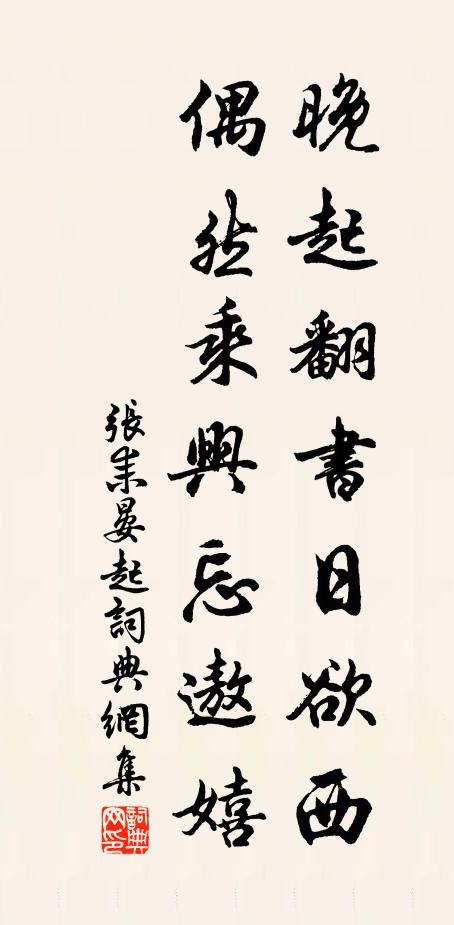 晚起翻書日欲西
偶然乘興忘遨嬉
張耒晏起詞典網集
詞典
网印